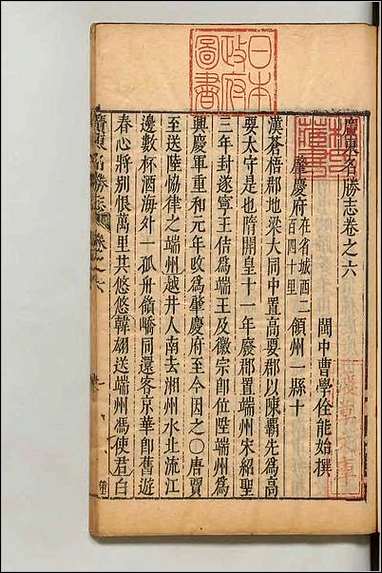 廣東名勝志卷之六
閩中曹學佺能始撰
肇慶府在省城西二百四十里領州一縣十
漢蒼梧郡地梁大同中置高要郡以陳覇先為高
要太守是也隋開皇十一年廢郡置端州宋紹聖
三年封遂寧王佶為端王及徽宗即位陞端州為
興慶軍重和元年攺為肇慶府至今因之〇唐賈
至送陸協律之端州越井人南去湘州水北流江
邊數杯酒海外一孤舟嶺嶠同還客京華即舊遊
春心將别恨萬里共悠悠韓翃送端州馮使君白
廣東名勝志
卷之六
一
日本
政府
圖書